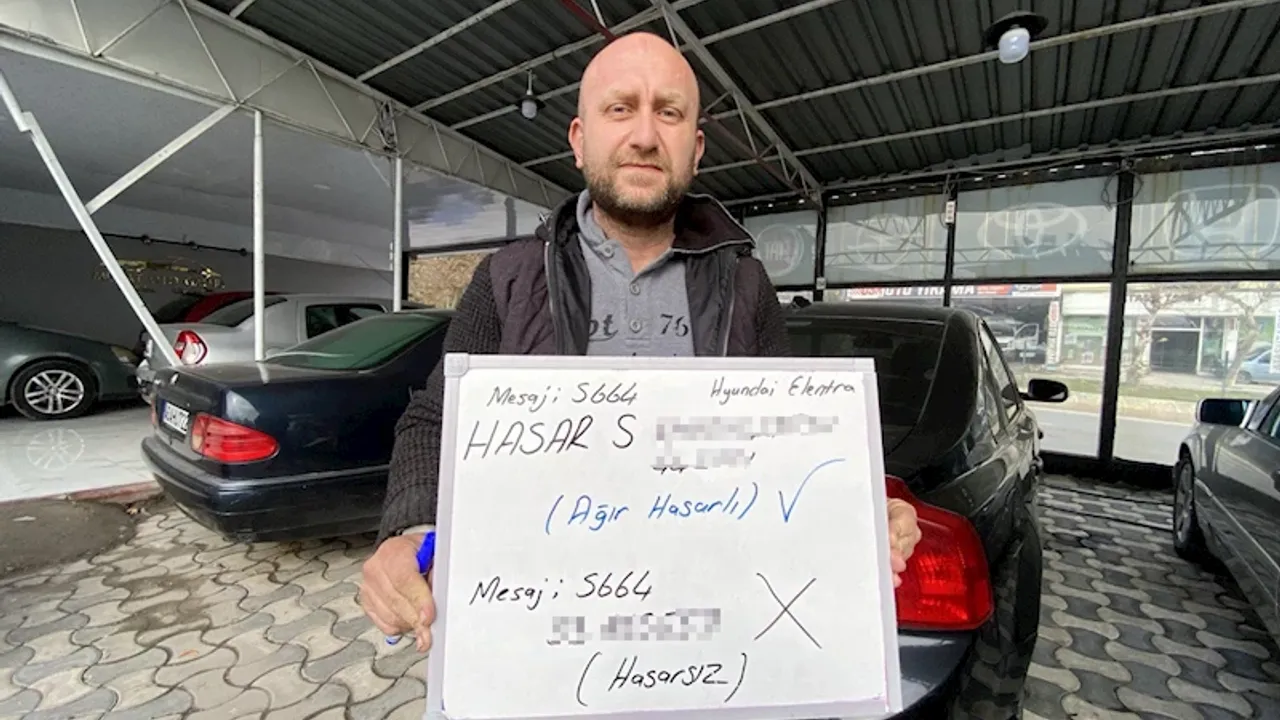 Mesaji 5664
Hyundai Elentra
HASAR S
(Ağır Hasarlı)
Mesaji 5664
(Hasarsız)
76
OTO YIKAMA